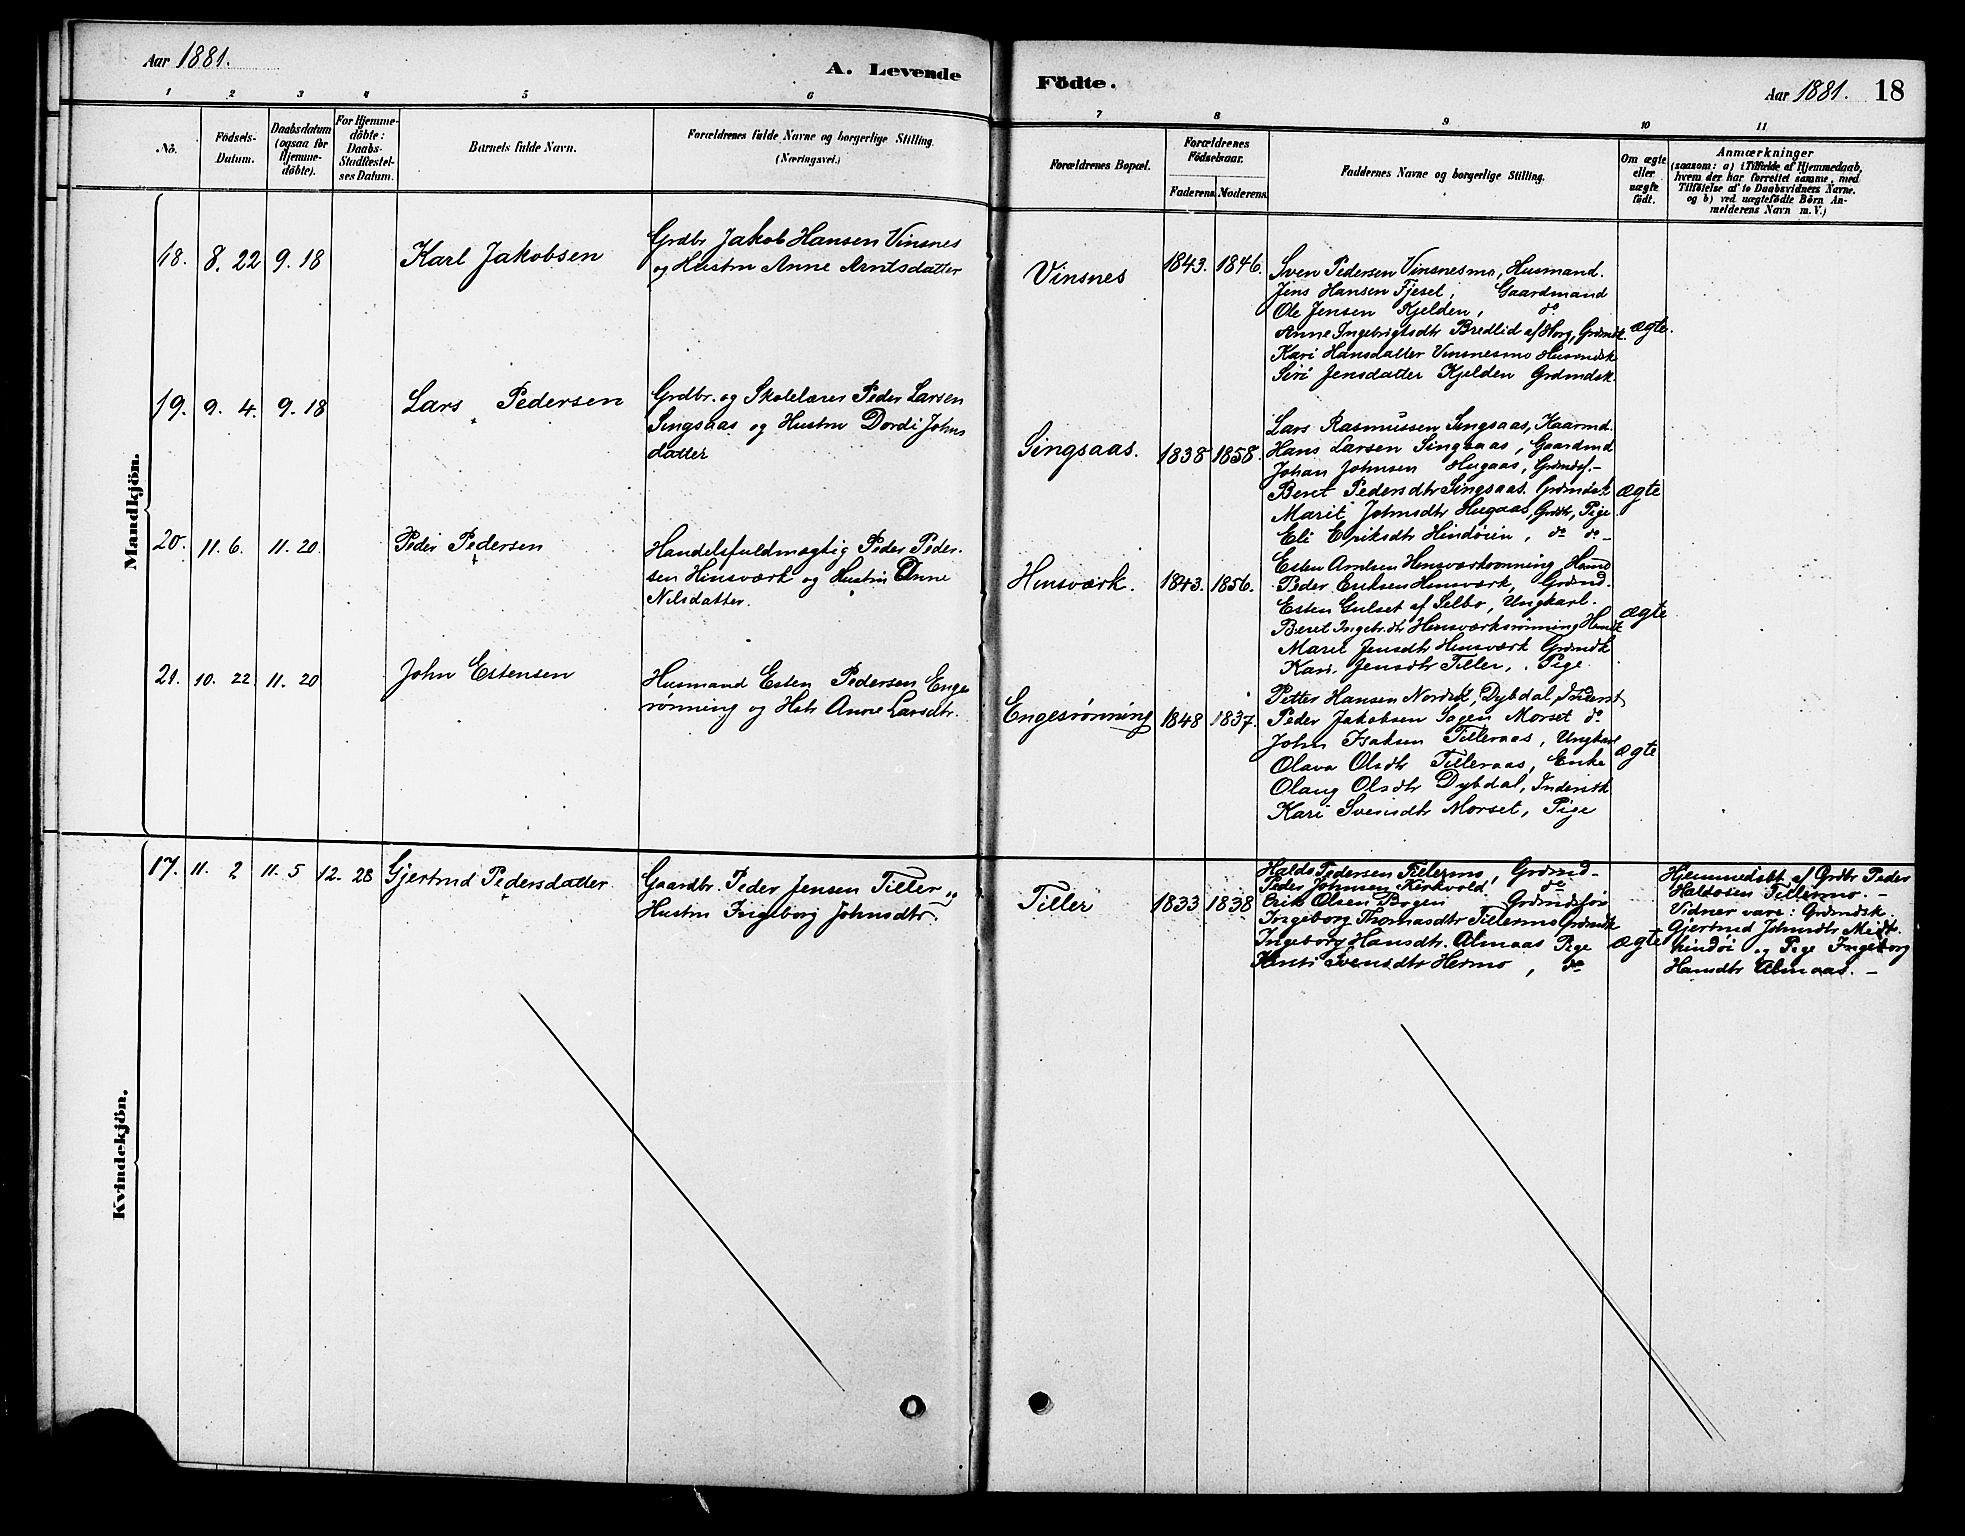 Aar 1881.
A. Levende
1 2 3 4 5 6
No.
Födsels-
Datum.
Daabsdatum
(ogsaa for
Hjemme-
döbte).
For Hjemme-
döbte:
Daabs-
Stadfæstel-
ses Datum.
Barnets fulde Navn.
Forældrenes fulde Navne og borgerlige Stilling.
(Næringsvei.)
Mandkjön.
18. 8. 22 9. 18 Karl Jakobsen
Grdbr Jakob Hansen Vinsnes
og Hustru Anne Arntsdatter
19. 9. 4. 9. 18 Lars Pedersen
Grdbr. og Skolelærer Peder Larsen
Singsaas og Hustru Dordi Johns
datter
20. 11. 6. 11. 20. Peder Pedersen
Handelsfuldmægtig Peder Peder-
sen Hinsværk og Hustru Anne
Nilsdatter.
21. 10. 22 11. 20 John Estensen
Husmand Esten Pedersen Enges
rönning og Hstr Anne Larsdtr.
Kvindekjön.
17. 11. 2 11. 5 12. 28 Gjertrud Pedersdatter
Gaardbr. Peder Jensen Tiller og
Hustru Ingeborg Johnsdtr.
Födte.
Aar 1881. 18
7 8 9 10 11
Forældrenes Bopæl.
Forældrenes
Födselsaar.
Faderens. Moderens.
Faddernes Navne og borgerlige Stilling.
Om ægte
eller
uægte
födt.
Anmærkninger
(saasom: a) i Tilfælde af Hjemmedaab,
hvem der har forrettet samme, med
Tilföielse af to Daabsvidners Navne.
og b) ved uægtefödte Börn An-
melderens Navn m. V.)
Vinsnes 1843. 1846.
Sven Pedersen Vinsnesmo, Husmand.
Jens Hansen Fjesel, Gaardmand
Ole Jensen Kjelden, do
Anne Ingebrigtsdtr Bredlid af Horg, Grdmdsk.
Kari Hansdatter Vinsnesmo Husmdsk
Siri Jensdatter Kjelden Grdmdsk.
ægte.
Singsaas. 1838 1858.
Lars Rasmussen Singsaas, Kaarmd.
Hans Larsen Singsaas, Gaardmd
Johan Johnsen Hugaas, Grdmds. -
Beret Pedersdtr Singsaas. Grdmdsk
Marit Johnsdtr Hugaas, Pige
Eli Eriksdtr Hindöien, do do -
ægte
Hinsværk. 1843. 1856.
Esten Arntsen Hinsværkrönning
Peder Eriksen Hinsværk, Grdmd.
Esten Gulset af Selbo, Ungkarl.
Beret Hinsværksrönning
Marit Jensdtr Hinsværk Grdmdk
Kari Jensdtr Tiller, Pige
ægte
Engesrönning 1848 1837.
Petter Hansen Dybdal, Inderst
Peder Jakobsen Morset do
John Isaksen Tilleraas, Ungkarl
Olava Olsdtr Tilleraas, Enke
Olaug Olsdtr Dybdal, Inderstk
Kari Svensdtr Morset, Pige
ægte
Tiller 1833 1838
Haldo Pedersen Tillermo, Grdmd-
Peder Johnsen Kirkvold, do
Erik Olsen Bogen
Ingeborg Thomasdtr Tillermo Grdmdk
Ingeborg Hansdtr. Almaas Pige
Svensdtr Hermo, do
ægte
Hjemmedöbt af Grdbr Peder
Haldosen Tillermo. -
Vidner vare: Grdmdsk.
Gjertrud Johnsdtr Midt-
hindöi og Pige Ingeborg
Hansdtr Almaas. -